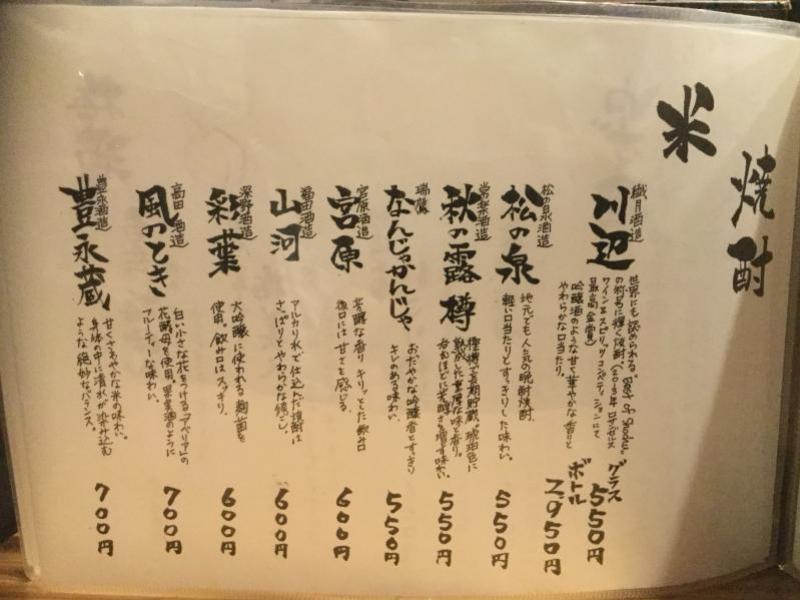 米焼酎
繊月酒造
川辺
世界にも認められる"Best of Shochu"
の称号に輝く焼酎。(2013年ロサンゼルス
ワイン&スピリッツコンペティションにて
最高金賞)
吟醸酒のような甘く華やかな香りと
やわらかな口当たり。
グラス
550円
ボトル
2950円
松の泉酒造
松の泉
地元でも人気の晩酌焼酎。
軽い口当たりとすっきりした味わい。
550円
常楽酒造
秋の露 樽
樫樽で長期貯蔵。琥珀色に
熟成した重厚な味と香り。
550円
瑞鷹
なんじゃかんじゃ
おだやかな吟醸香とすっきり
キレのある味わい。
550円
宮原酒造
宮原
芳醇な香り、キリッとした飲み口
後口には甘さを感じる。
600円
福田酒造
山河
アルカリ水で仕込んだ焼酎は
さっぱりとやわらかな後ごし。
600円
深野酒造
彩葉
大吟醸に使われる麹菌を
使用。飲み口はスッキリ。
600円
高田酒造
風のとき
白い小さな花をつける「アベリア」の
花酵母を使用。果実酒のように
フルーティーな味わい。
700円
豊永酒造
豊永蔵
甘くさわやかな米の味わい。
身体の中に清水が染み込む
ような絶妙なバランス。
700円